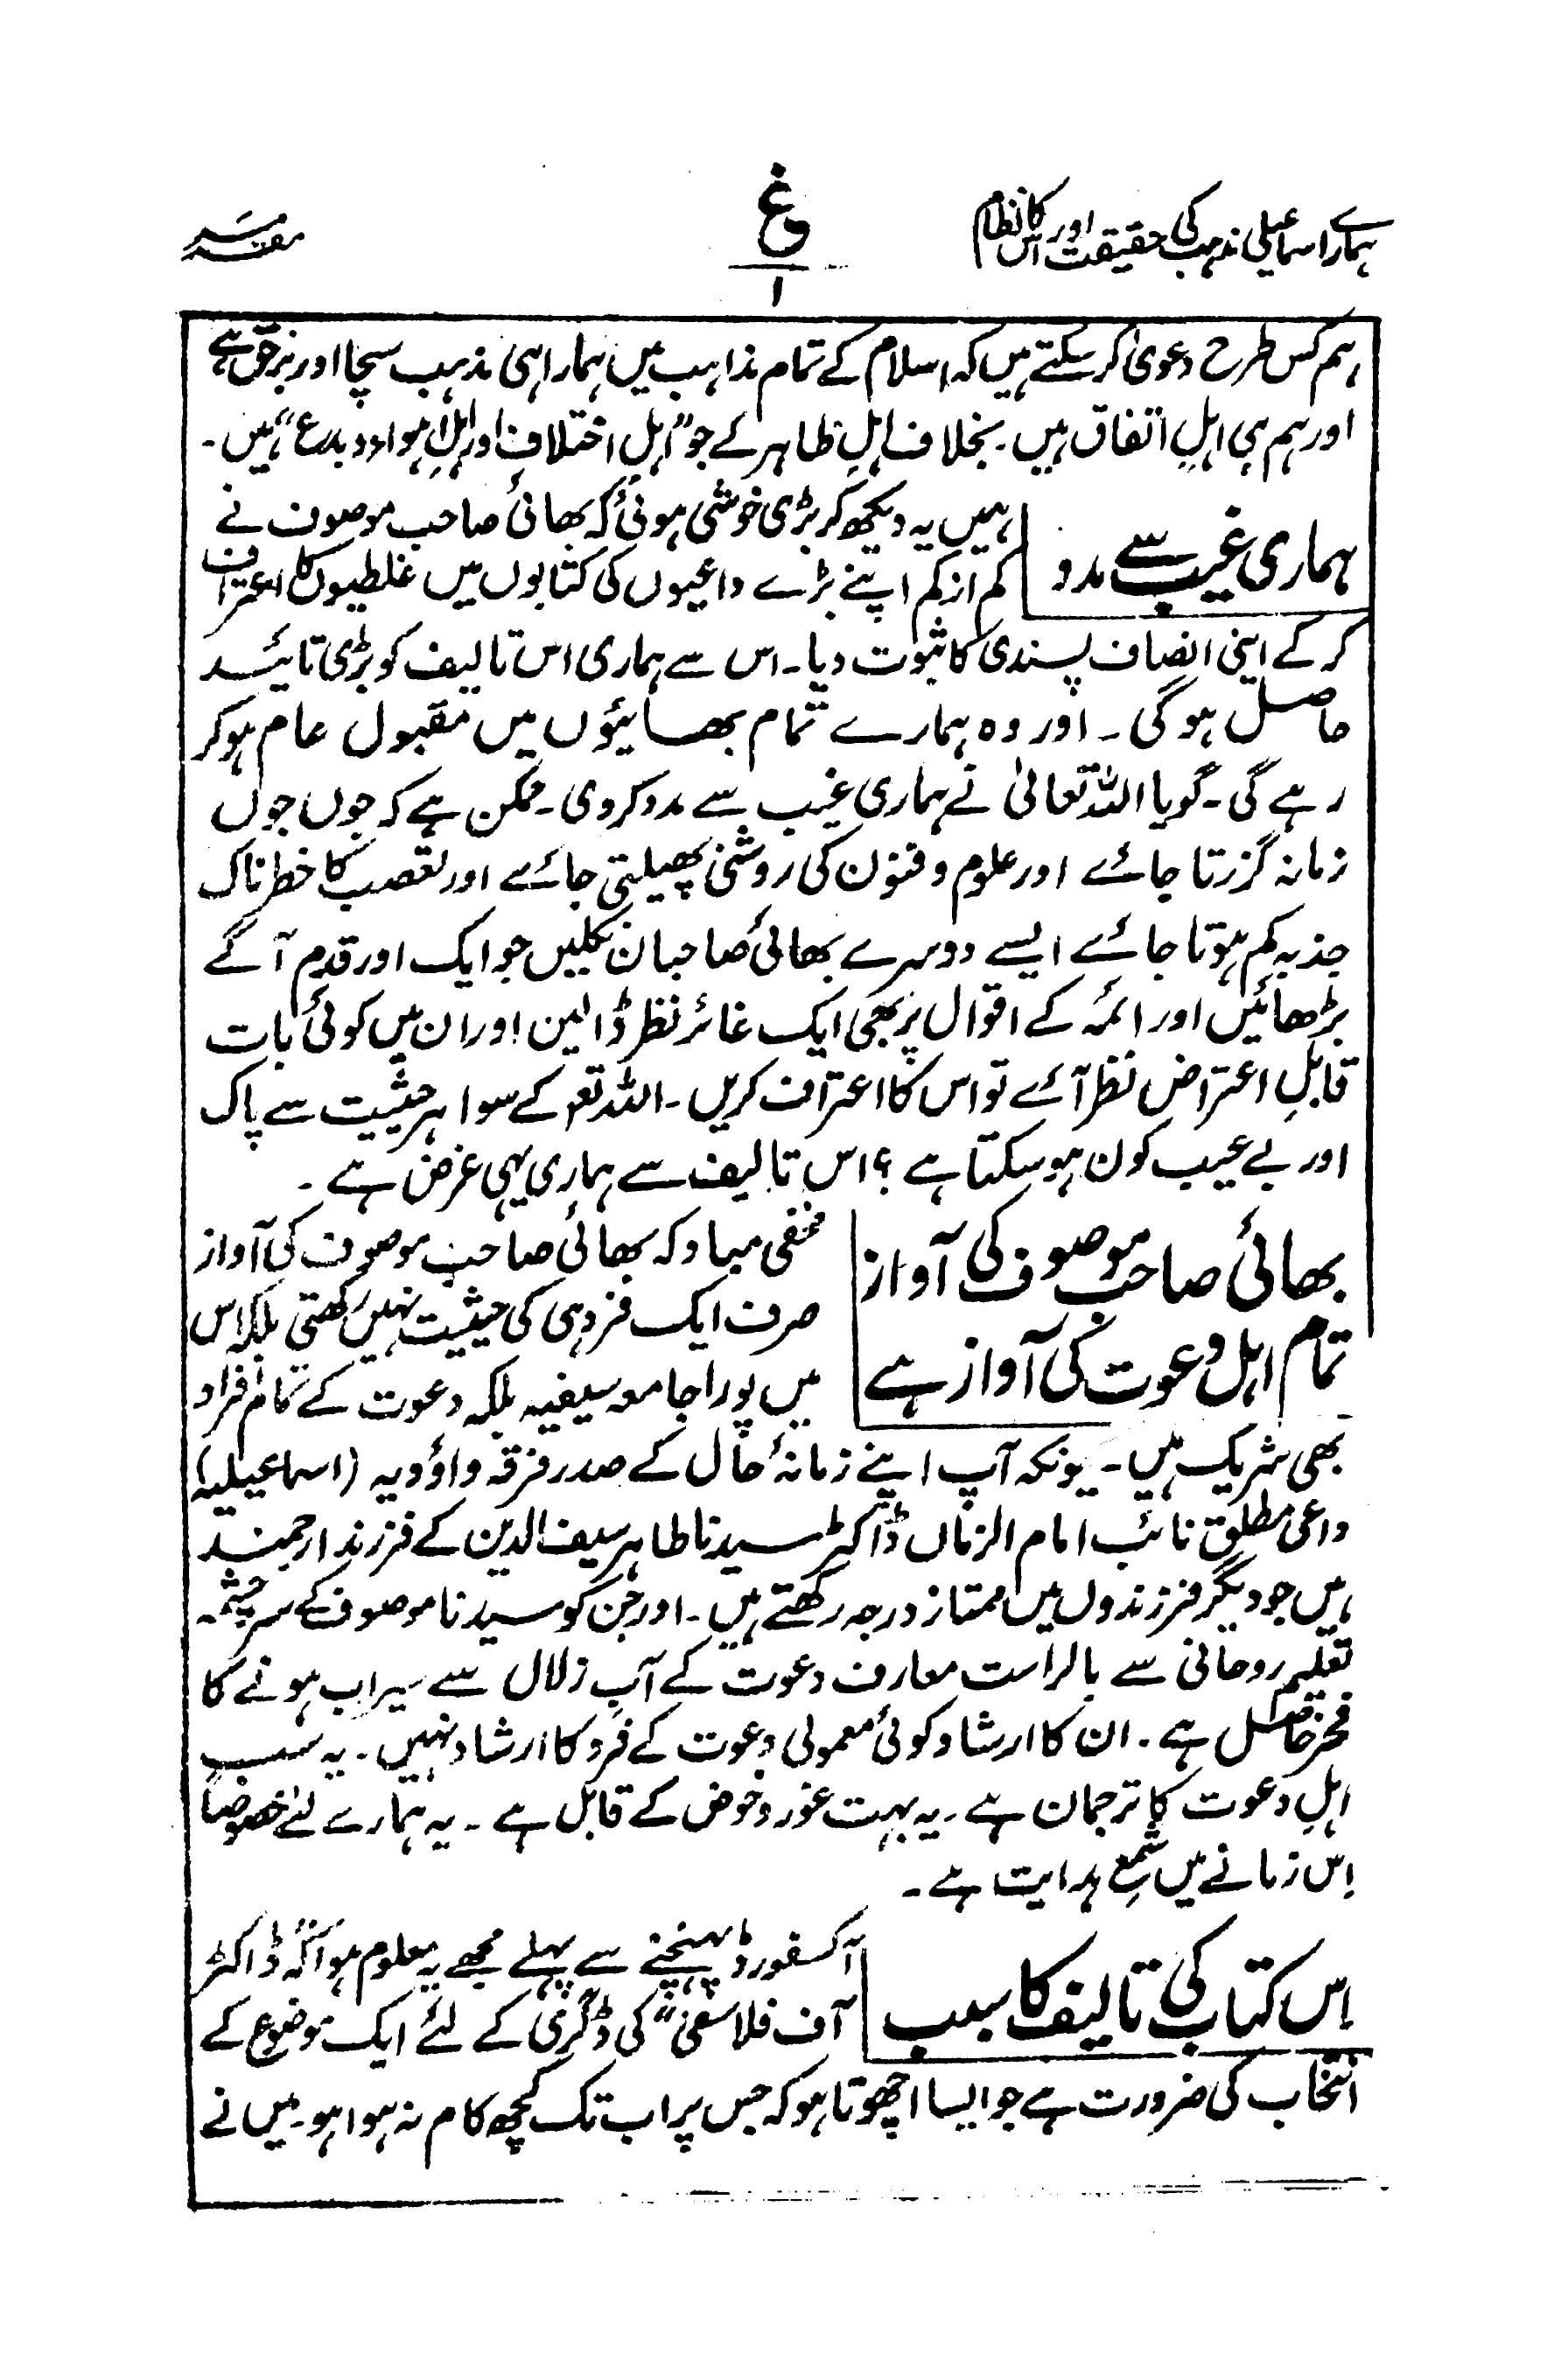 ہمارے اسماعیلی مذہب کی حقیقت اور اس کا نظام
غ
۱
مقدمہ
ہم کس طرح دعویٰ کرسکتے ہیں کہ اسلام کے تمام مذاہب میں ہمارا ہی مذہب سچا اور برحق ہے
اور ہم ہی اہلِ اتفاق ہیں۔ بخلاف اہلِ ظاہر کے جو "اہلِ اختلاف اور اہلِ اہوا و بدع" ہیں۔
ہماری غیب سے مدد
ہمیں یہ دیکھ کر بڑی خوشی ہوئی کہ بھائی صاحب موصوف نے
کم از کم اپنے بڑے داعیوں کی کتابوں میں غلطیوں کا اعتراف
کرکے اپنی انصاف پسندی کا ثبوت دیا۔ اس سے ہماری اس تالیف کو بڑی تائید
حاصل ہوگی۔ اور وہ ہمارے تمام بھائیوں میں مقبول عام ہوکر
رہے گی۔ گویا اللہ تعالیٰ نے ہماری غیب سے مدد کردی۔ ممکن ہے کہ جوں جوں
زمانہ گزرتا جائے اور علوم و فنون کی روشنی پھیلتی جائے اور تعصب کا خطرناک
جذبہ کم ہوتا جائے ایسے دوسرے بھائی صاحبان نکلیں جو ایک اور قدم آگے
بڑھائیں اور ائمہ کے اقوال پر بھی ایک غائر نظر ڈالیں اور ان میں کوئی بات
قابلِ اعتراض نظر آئے تو اس کا اعتراف کریں۔ اللہ تعہ کے سوا ہر حیثیت سے پاک
اور بے عیب کون ہوسکتا ہے؟ اس تالیف سے ہماری یہی غرض ہے۔
بھائی صاحب موصوف کی آواز
تمام اہل دعوت کی آواز ہے
مخفی مبادکہ بھائی صاحب موصوف کی آواز
صرف ایک فرد ہی کی حیثیت نہیں رکھتی بلکہ اس
میں پورا جامعہ سیفیہ بلکہ دعوت کے تمام افراد
بھی شریک ہیں۔ یونکہ آپ اپنے زمانۂ حال کے صدر فرقہ داؤدیہ (اسماعیلیہ)
داعی مطلق نائب امام الزماں ڈاکٹر سیدنا طاہر سیف الدین کے فرزند ارجمند
ہیں جو دیگر فرزندوں میں ممتاز درجہ رکھتے ہیں۔ اور جن کو سیدنا موصوف کے سرچشمہ
تعلیم روحانی سے بالراست معارف دعوت کے آبِ زلال سے سیراب ہونے کا
فخر حاصل ہے۔ ان کا ارشاد کوئی معمولی دعوت کے فرد کا ارشاد نہیں۔ یہ سب
اہلِ دعوت کا ترجمان ہے۔ یہ بہت غور و خوض کے قابل ہے۔ یہ ہمارے لئے خصوصاً
اِس زمانے میں شمعِ ہدایت ہے۔
اِس کتاب کی تالیف کا سبب
آکسفورڈ پہنچنے سے پہلے مجھے یہ معلوم ہوا کہ "ڈاکٹر
آف فلاسفی" کی ڈگری کے لئے ایک موضوع کے
انتخاب کی ضرورت ہے جو ایسا اچھوتا ہو کہ جس پر اب تک کچھ کام نہ ہوا ہو۔ میں نے